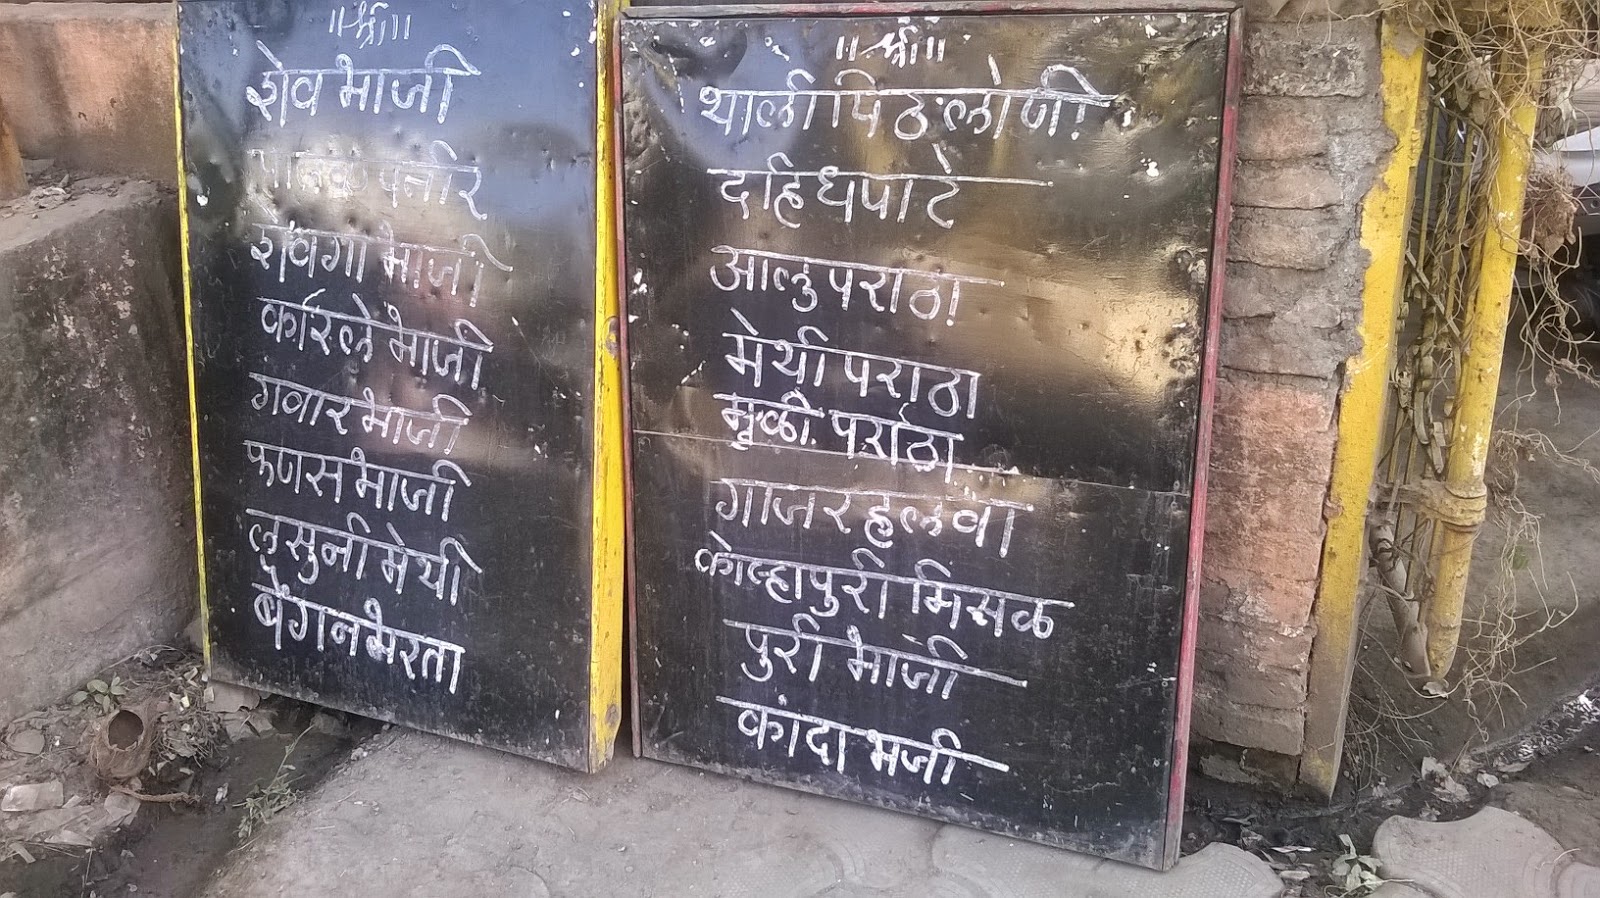 ॥श्री॥
शेव भाजी
पालक पनीर
शेवगा भाजी
कारले भाजी
गवार भाजी
फणस भाजी
लसुनी मेथी
बेंगन भरता
॥श्री॥
थाली पिठ लोणी
दहि धपाटे
आलु पराठा
मेथी पराठा
मूळी पराठा
गाजर हलवा
कोल्हापुरी मिसळ
पुरी भाजी
कांदा भजी